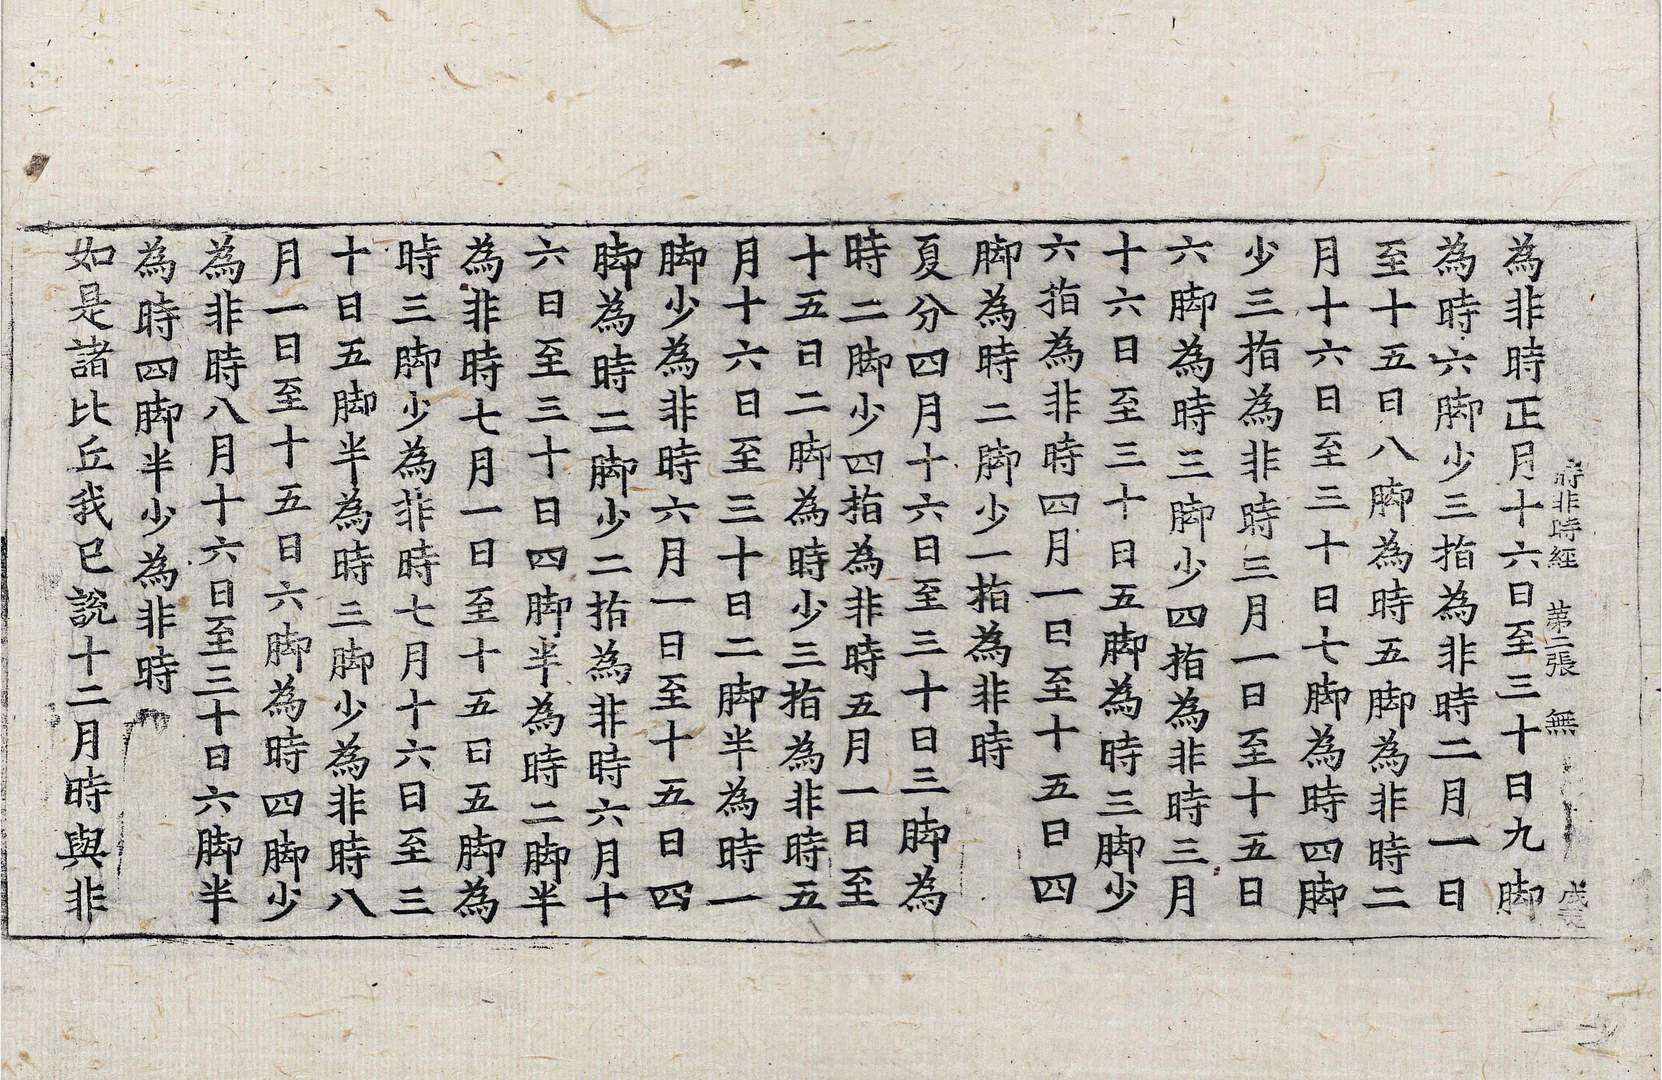 時非時經 第二張 無
為非時正月十六日至三十日九脚
為時六脚少三指為非時二月一日
至十五日八脚為時五脚為非時二
月十六日至三十日七脚為時四脚
少三指為非時三月一日至十五日
六脚為時三脚少四指為非時三月
十六日至三十日五脚為時三脚少
六指為非時四月一日至十五日四
脚為時二脚少一指為非時
夏分四月十六日至三十日三脚為
時二脚少四指為非時五月一日至
十五日二脚為時少三指為非時五
月十六日至三十日二脚半為時一
脚少為非時六月一日至十五日四
脚為時二脚少二指為非時六月十
六日至三十日四脚半為時二脚半
為非時七月一日至十五日五脚為
時三脚少為非時七月十六日至三
十日五脚半為時三脚少為非時八
月一日至十五日六脚為時四脚少
為非時八月十六日至三十日六脚半
為時四脚半少為非時
如是諸比丘我已說十二月時與非